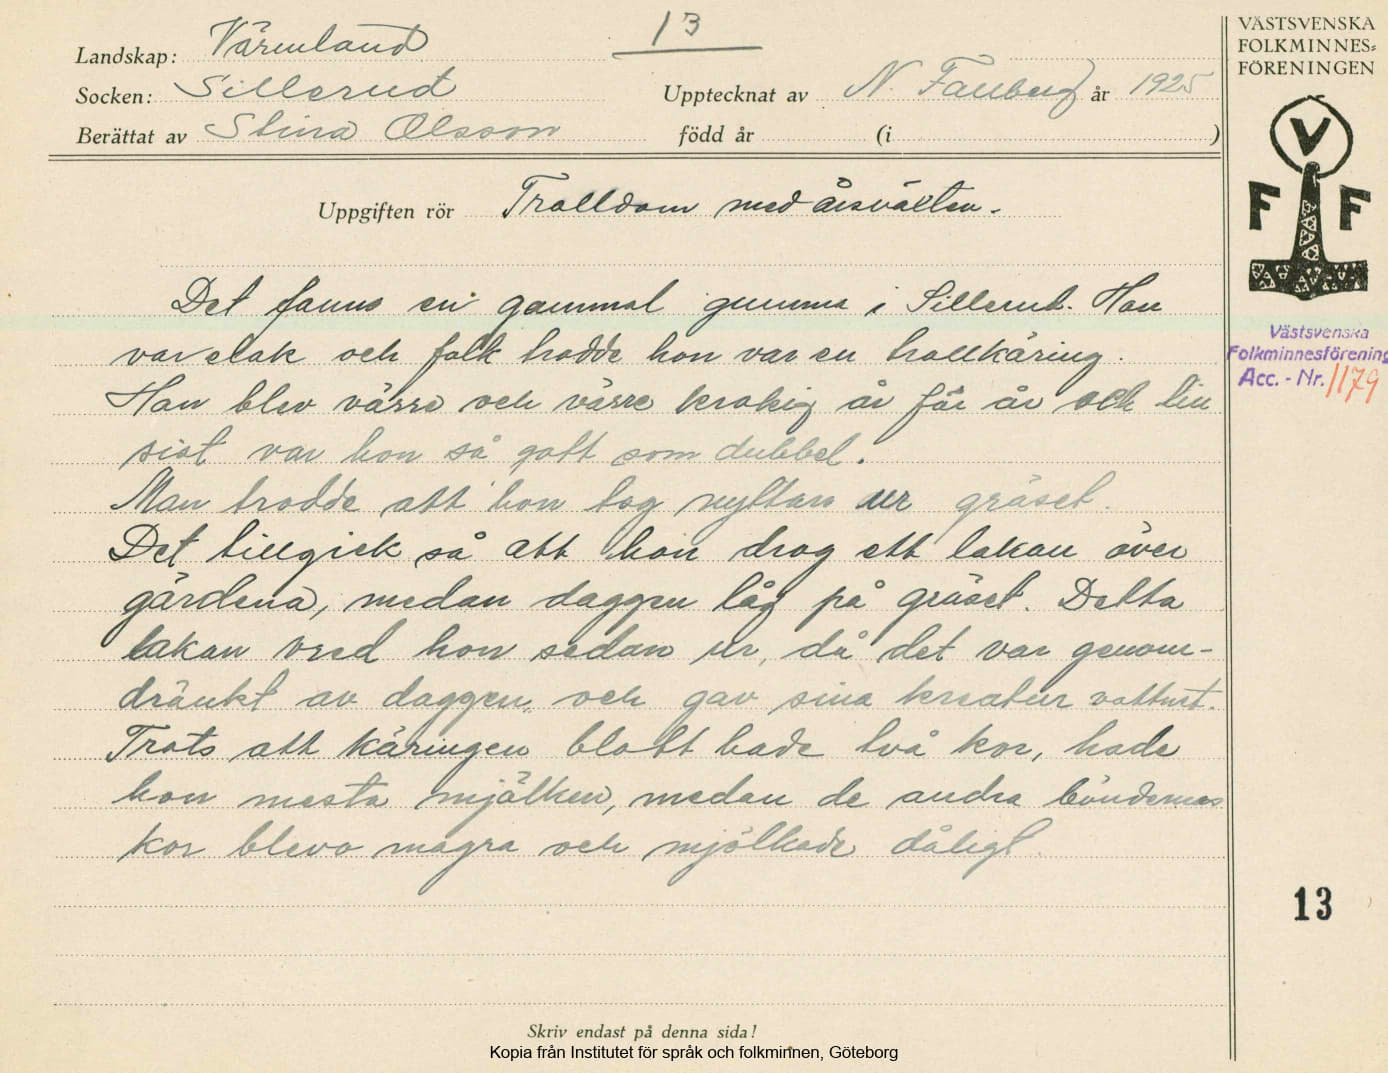 13
Landskap: Värmland
Socken: Sillerud
Upptecknat av N. Fanberg år 1925
Berättat av Stina Olsson född år (i )
Uppgiften rör Trolldom med årsväxten.
Det fanns en gammal gumma i Sillerud. Hon
var elak och folk trodde hon var en trollkäring.
Hon blev värre och värre krokig år för år och till
sist var hon så gott som dubbel.
Man trodde att hon tog nyttan ur gräset.
Det tillgick så att hon drog ett lakan över
gärdena, medan daggen låg på gräset. Detta
lakan vred hon sedan ur, då det var genom-
dränkt av daggen, och gav sina kreatur vattnet.
Trots att käringen blott hade två kor, hade
hon mesta mjölken, medan de andra böndernas
kor blevo magra och mjölkade dåligt.
Skriv endast på denna sida!
Kopia från Institutet för språk och folkminnen, Göteborg
VÄSTSVENSKA
FOLKMINNES=
FÖRENINGEN
V
F F
Västsvenska
Folkminnesförening
Acc. - Nr. 1179
13